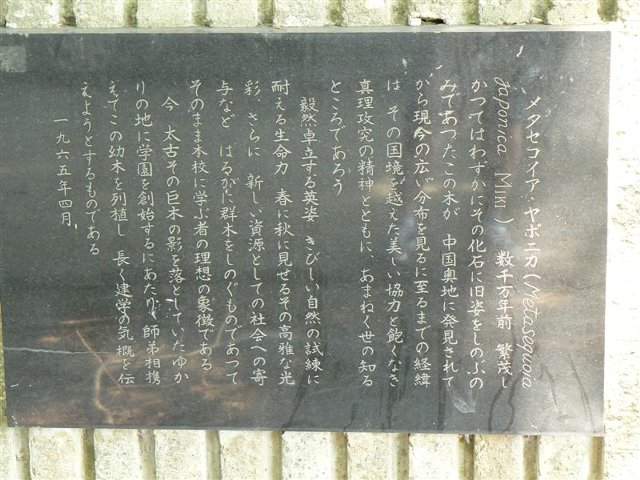 メタセコイア・ヤポニカ(Metasequoia
Japonica Miki) 数千万年前 繁茂し
かつてはわずかにその化石に旧姿をしのぶの
みであつたこの木が 中国奥地に発見されて
から現今の広い分布を見るに至るまでの経緯
は その国境を越えた美しい協力と飽くなき
真理攻究の精神とともに、あまねく世の知る
ところであろう
毅然卓立する英姿 きびしい自然の試練に
耐える生命力 春に秋に見せるその高雅な光
彩、さらに 新しい資源としての社会への寄
与など はるかに群木をしのぐものであつて
そのまま本校に学ぶ者の理想の象徴である
今 太古その巨木の影を落としていたゆか
りの地に学園を創始するにあたり 師弟相携
えてこの幼木を列植し 長く建学の気概を伝
えようとするものである
一九六五年四月